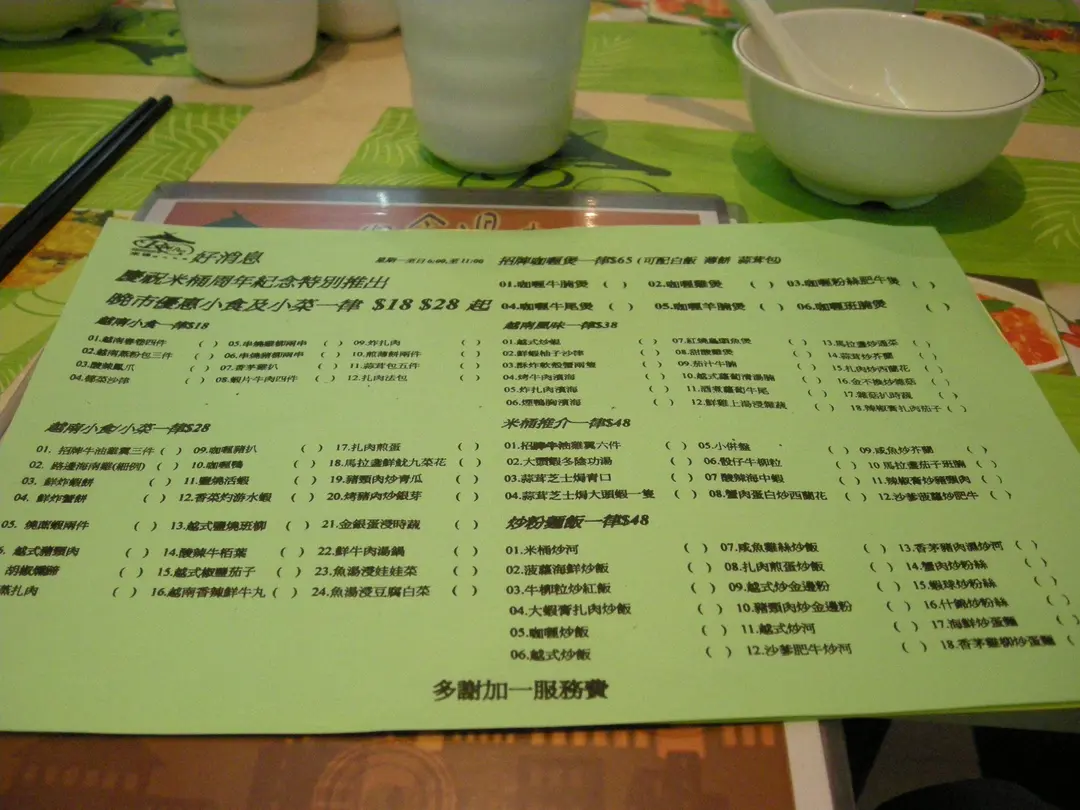 好消息
星期一至日 6:00 至 11:00
慶祝米桶周年紀念特別推出
晚市優惠小食及小菜一律 $18 $28 起
越南小食一律$18
01.越南春卷四件 ( )
02.越南蒸粉包三件 ( )
03.酸辣鳳爪 ( )
04.椰菜沙律 ( )
05.串燒雞都兩串 ( )
06.串燒豬都兩串 ( )
07.香茅雞扒 ( )
08.蝦片牛肉四件 ( )
09.炸扎肉 ( )
10.煎薄餅兩件 ( )
11.蒜茸包五件 ( )
12.扎肉法包 ( )
招牌咖喱煲一律$65 (可配白飯 薄餅 蒜茸包)
01.咖喱牛腩煲 ( )
02.咖喱雞煲 ( )
03.咖喱粉絲肥牛煲 ( )
04.咖喱牛尾煲 ( )
05.咖喱羊腩煲 ( )
06.咖喱班腩煲 ( )
越南風味一律$38
01.越式炒蜆 ( )
02.鮮蝦柚子沙律 ( )
03.酥炸軟殼蟹兩隻 ( )
04.烤牛肉濱海 ( )
05.炸扎肉濱海 ( )
06.煙鴨胸濱海 ( )
08.甜酸雞煲 ( )
09.茄汁牛腩 ( )
10.越式蘿蔔清湯腩 ( )
11.酒煮蘿蔔牛尾 ( )
12.鮮雞上湯浸雜蔬 ( )
13.馬拉盞炒通菜 ( )
14.蒜茸炒芥蘭 ( )
15.扎肉炒西蘭花 ( )
16.金不換炒雜菇 ( )
17.雜菇扒時蔬 ( )
18.辣椒膏扎肉茄子 ( )
越南小食/小菜一律$28
01. 招牌牛油雞翼三件 ( )
02. 路邊海南雞(細例) ( )
03. 鮮炸蝦餅 ( )
04. 鮮炸蟹餅 ( )
05. 燒蔗蝦兩件 ( )
越式豬頸肉 ( )
胡椒 ( )
蒸扎肉 ( )
09.咖喱豬扒 ( )
10.咖喱鴨 ( )
11.鹽燒活蝦 ( )
12.香菜灼游水蝦 ( )
13.越式鹽燒班柳 ( )
14.酸辣牛栢葉 ( )
15.越式椒鹽茄子 ( )
16.越南香辣鮮牛丸 ( )
17.扎肉煎蛋 ( )
18.馬拉盞鮮魷九菜花 ( )
19.豬頸肉炒青瓜 ( )
20.烤豬肉炒銀芽 ( )
21.金銀蛋浸時蔬 ( )
22.鮮牛肉湯鍋 ( )
23.魚湯浸娃娃菜 ( )
24.魚湯浸豆腐白菜 ( )
米桶推介一律$48
01.招牌牛油雞翼六件 ( )
02.大頭蝦多陰功湯 ( )
03.蒜茸芝士焗青口 ( )
04.蒜茸芝士焗大頭蝦一隻 ( )
05.小併盤 ( )
06.骰仔牛柳粒 ( )
07 酸辣海中蝦 ( )
08.蟹肉蛋白炒西蘭花 ( )
09.咸魚炒芥蘭 ( )
10 馬拉盞茄子班腩 ( )
11.辣椒膏炒豬頸肉 ( )
12.沙爹菠蘿炒肥牛 ( )
炒粉麵飯一律$48
01.米桶炒河 ( )
02.菠蘿海鮮炒飯 ( )
03.牛柳粒炒紅飯 ( )
04.大蝦膏扎肉炒飯 ( )
05.咖喱炒飯 ( )
06.越式炒飯 ( )
07.咸魚雞絲炒飯 ( )
08.扎肉煎蛋炒飯 ( )
09.越式炒金邊粉 ( )
10.豬頸肉炒金邊粉 ( )
11.越式炒河 ( )
12.沙爹肥牛炒河 ( )
13.香茅豬肉濕炒河 ( )
14.蟹肉炒粉絲 ( )
15.蝦球炒粉絲 ( )
16.什錦炒粉絲 ( )
17.海鮮炒蛋麵 ( )
18.香茅雞柳炒蛋麵 ( )
多謝加一服務費